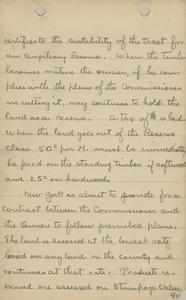 certificate the suitability of the tract for
an Auxiliary Reserve. When the timber
becomes mature the owner, if he com-
plies with the plans of the Commissioner
in cutting it, may continue to hold the
land as a reserve. A tax of is laid.
When the land goes out of the Reserve
Class 50¢ per M. must be immediately
be paid on the standing timber if softwood
and 25¢ on hardwood.
New York is about to provide for a
contract between the Commissioner and
the Owner to follow prescribed plans.
The land is assessed at the lowest rate
levied on any land in the county and
continues at that rate. Products re-
moved are assessed on Stumpage Value